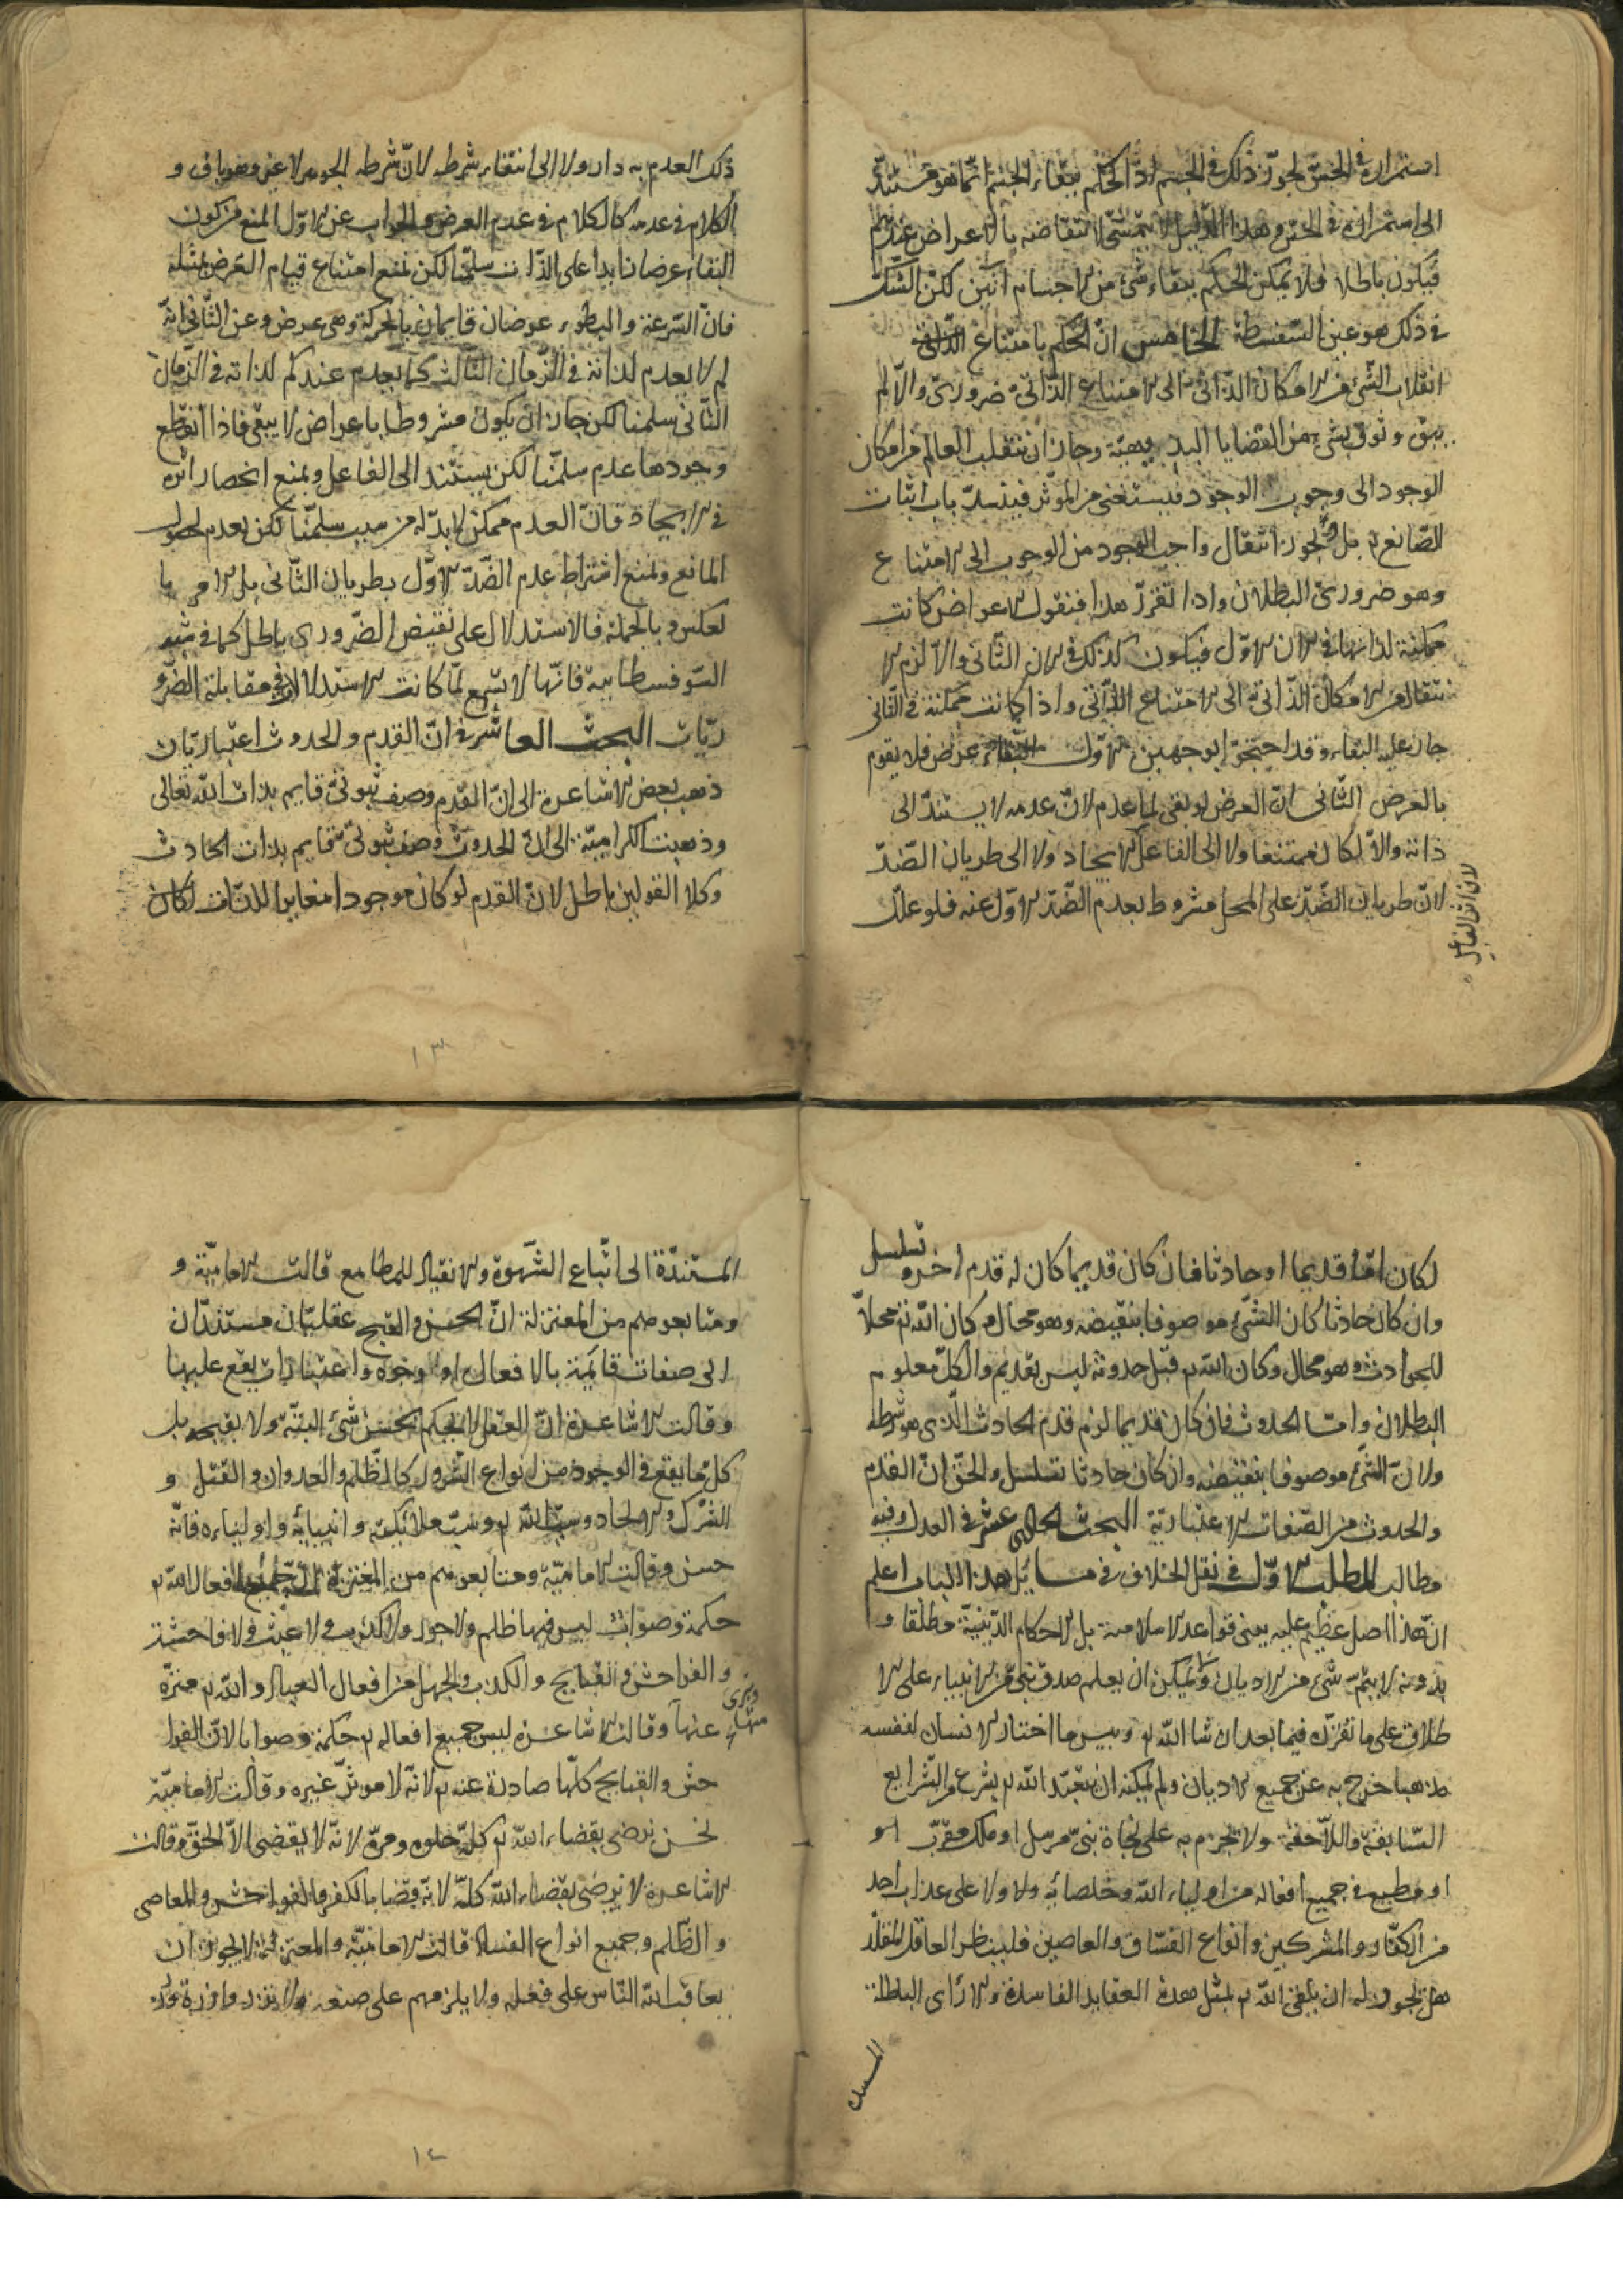 استمراره في الحس لجوز ذلك في الجسم اذ الحكم ببقاء الجسم انما هو مستند
الى استمراره في الحس وهذا الدليل لا يتمشى لانتقاضه بالاعراض عندهم
فيكون باطلا فلا يمكن الحكم ببقاء شئ من الاجسام آنين لكن الشك
في ذلك هو عين السفسطة الخامس ان الحكم بامتناع
انقلاب الشئ من الامكان الذاتي الى الامتناع الذاتي ضروري والا لم
يبق وثوق بشئ من القضايا البديهية وجاز ان ينقلب العالم من امكان
الوجود الى وجوب الوجود فيستغنى من المؤثر فينسد باب اثبات
الصانع تع بل ويجوز انتقال واجب الوجود من الوجوب الى الامتناع
وهو ضروري البطلان واذا تقرر هذا فنقول الاعراض كانت
ممكنة لذاتها في الآن الاول فيكون كذلك في الآن الثاني والا لزم الا
نتقال من الامكان الذاتي الى الامتناع الذاتي واذا كانت ممكنة في الثاني
جاز عليه البقاء وقد احتجوا بوجهين الاول البقاء عرض فلا يقوم
بالعرض الثاني ان العرض لو بقى لما عدم لان عدمه لا يستند الى
ذاته والا لكان ممتنعا ولا الى الفاعل الايجاد ولا الى طريان الضد
لان طريان الضد على المحل مشروط بعدم الضد الاول عنه فلو علل
لان اثر الفاعل
ذلك العدم به دار ولا الى انتفاء شرطه لان شرطه الجوهر لا غير وهو باق و
الكلام في عدمه كالكلام في عدم العرض والجواب عن الاول المنع من كون
البقاء عرضا زايدا على الذات سلمنا لكن نمنع امتناع قيام العرض بمثله
فان السرعة والبطوء عرضان قايمان بالحركة وهي عرض وعن الثاني انه
لم لا يعدم لذاته في الزمان الثالث كما يعدم عندكم لذاته في الزمان
الثاني سلمنا لكن جاز ان يكون مشروطا باعراض لا يبقى فاذا انقطع
وجودها عدم سلمنا لكن يستند الى الفاعل ونمنع انحصار اثره
في الايجاد فان العدم ممكن لا بد له من سبب سلمنا لكن يعدم لحصول
المانع ونمنع اشتراط عدم الضد الاول بطريان الثاني بل الامر با
لعكس وبالجملة فالاستدلال على نقيض الضروري باطل كما في شبه
السوفسطاييه فانها لا تسمع لما كانت الاستدلالات في مقابلة الضرو
ريات البحث العاشر في ان القدم والحدوث اعتباريان
ذهب بعض الاشاعرة الى ان القدم وصف ثبوتي قايم بذات الله تعالى
وذهبت الكرامية الى ان الحدوث وصف ثبوتي قايم بذات الحادث
وكلا القولين باطل لان القدم لو كان موجودا مغايرا للذات لكان
١٣
لكان اما قديما او حادثا فان كان قديما كان له قدم اخر و تسلسل
وان كان حادثا كان الشئ موصوفا بنقيضه وهو محال وكان الله تع محلا
للحوادث وهو محال وكان الله تع قبل حدوثه ليس بقديم والكل معلوم
البطلان واما الحدوث فان كان قديما لزم قدم الحادث الذي هو شرطه
ولان الشئ موصوفا بنقيضه وان كان حادثا تسلسل والحق ان القدم
والحدوث من الصفات الاعتبارية البحث الحادي عشر في العدل وفيه
مطالب المطلب الاول في نقل الخلاف في مسايل هذا الباب اعلم
ان هذا اصل عظيم عليه يبنى قواعد الاسلامية بل الاحكام الدينية مطلقا و
بدونه لا يتم شئ من الاديان ولا يمكن ان يعلم صدق نبي من الانبياء على الا
طلاق على ما نقرره فيما بعد ان شا الله تع وبيس ما اختار الانسان لنفسه
مذهبا خرج به عن جميع الاديان ولم يمكنه ان يتعبد الله تع بشرع من الشرايع
السابقة واللاحقة ولا يجزم به على نجاة نبي مرسل او ملك مقرب او
او مطيع في جميع افعاله من اولياء الله وخلصائه ولا ولا على عذاب احد
من الكفار والمشركين وانواع الفساق والعاصين فلينظر العاقل المقلد
هل يجوز له ان يلقى الله تع بمثل هذه العقايد الفاسدة والآراى الباطلة
المستندة
المستندة الى اتباع الشهوة والانقياد للمطامع قالت الامامية و
ومتابعوهم من المعتزلة ان الحسن والقبيح عقليان مستندان
الى صفات قايمة بالافعال او وجوه واعتبارات يقع عليها
وقالت الاشاعرة ان العقل لا يحكم بحسن شئ البتة ولا بقبحه بل
كل ما يقع في الوجود من انواع الشرور كالظلم والعدوان والقتل و
الشرك والالحاد وسب الله تع وسب ملائكته وانبيائه واوليائه فانه
حسن وقالت الامامية ومتابعوهم من المعتزلة ان جميع افعال الله تع
حكمة وصواب ليس فيها ظلم ولا جور ولا كذب ولا عبث ولا فاحشة
والفواحش والقبايح والكذب والجهل من افعال العباد والله تع منزه
وبرى منها
عنها وقالت الاشاعرة ليس جميع افعاله تع حكمة وصوابا لان الفوا
حش والقبايح كلها صادرة عنه تع لانه لا موثر غيره وقالت الامامية
نحن نرضى بقضاء الله تع كله حلوه ومره لانه لا يقضى الا الحق وقالت
الاشاعرة لا نرضى بقضاء الله كله لانه قضا بالكفر والفواحش والمعاصى
والظلم وجميع انواع الفساد قالت الامامية والمعتزلة لا يجوز ان
يعاقب الله الناس على فعله ولا يلزمهم على صنعه ولا تزر وازرة وزر
١٤